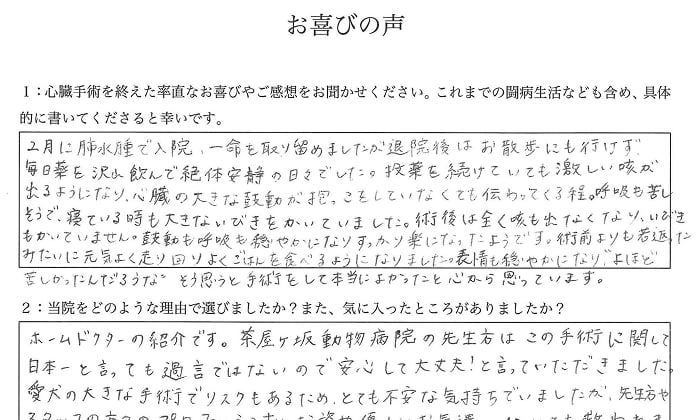 お喜びの声
1：心臓手術を終えた率直なお喜びやご感想をお聞かせください。これまでの闘病生活なども含め、具体
的に書いてくださると幸いです。
2月に肺水腫で入院、一命を取り留めましたが退院後はお散歩にも行けず
毎日薬を沢山飲んで絶体安静の日々でした。投薬を続けていても激しい咳が
出るようになり、心臓の大きな鼓動が抱っこをしていなくても伝わってくる程。呼吸も苦し
そうで、寝ている時も大きないびきをかいていました。術後は全く咳も出なくなり、いびき
もかいていません。鼓動も呼吸も穏やかになりすっかり楽になったようです。術前よりも若返った
みたいに元気よく走り回りよくごはんを食べるようになりました。表情も穏やかになり“よほど
苦しかったんだろうな”そう思うと手術をして本当によかったと心から思っています。
2：当院をどのような理由で選びましたか？また、気に入ったところがありましたか？
ホームドクターの紹介です。茶屋ヶ坂動物病院の先生方はこの手術に関して
日本一と言っても過言ではないので安心して大丈夫！と言っていただきました。
愛犬の大きな手術でリスクもあるため、とても不安な気持ちでいましたが、先生方や